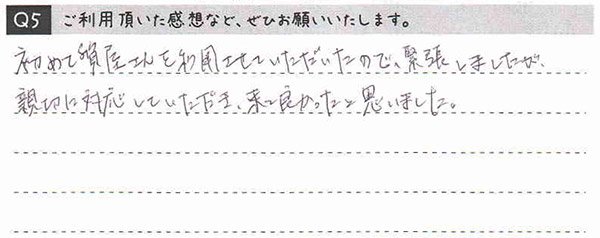 Q5 ご利用頂いた感想など、ぜひお願いいたします。
初めて質屋さんを利用させていただいたので、緊張しましたが、
親切に対応していただき、来て良かったと思いました。